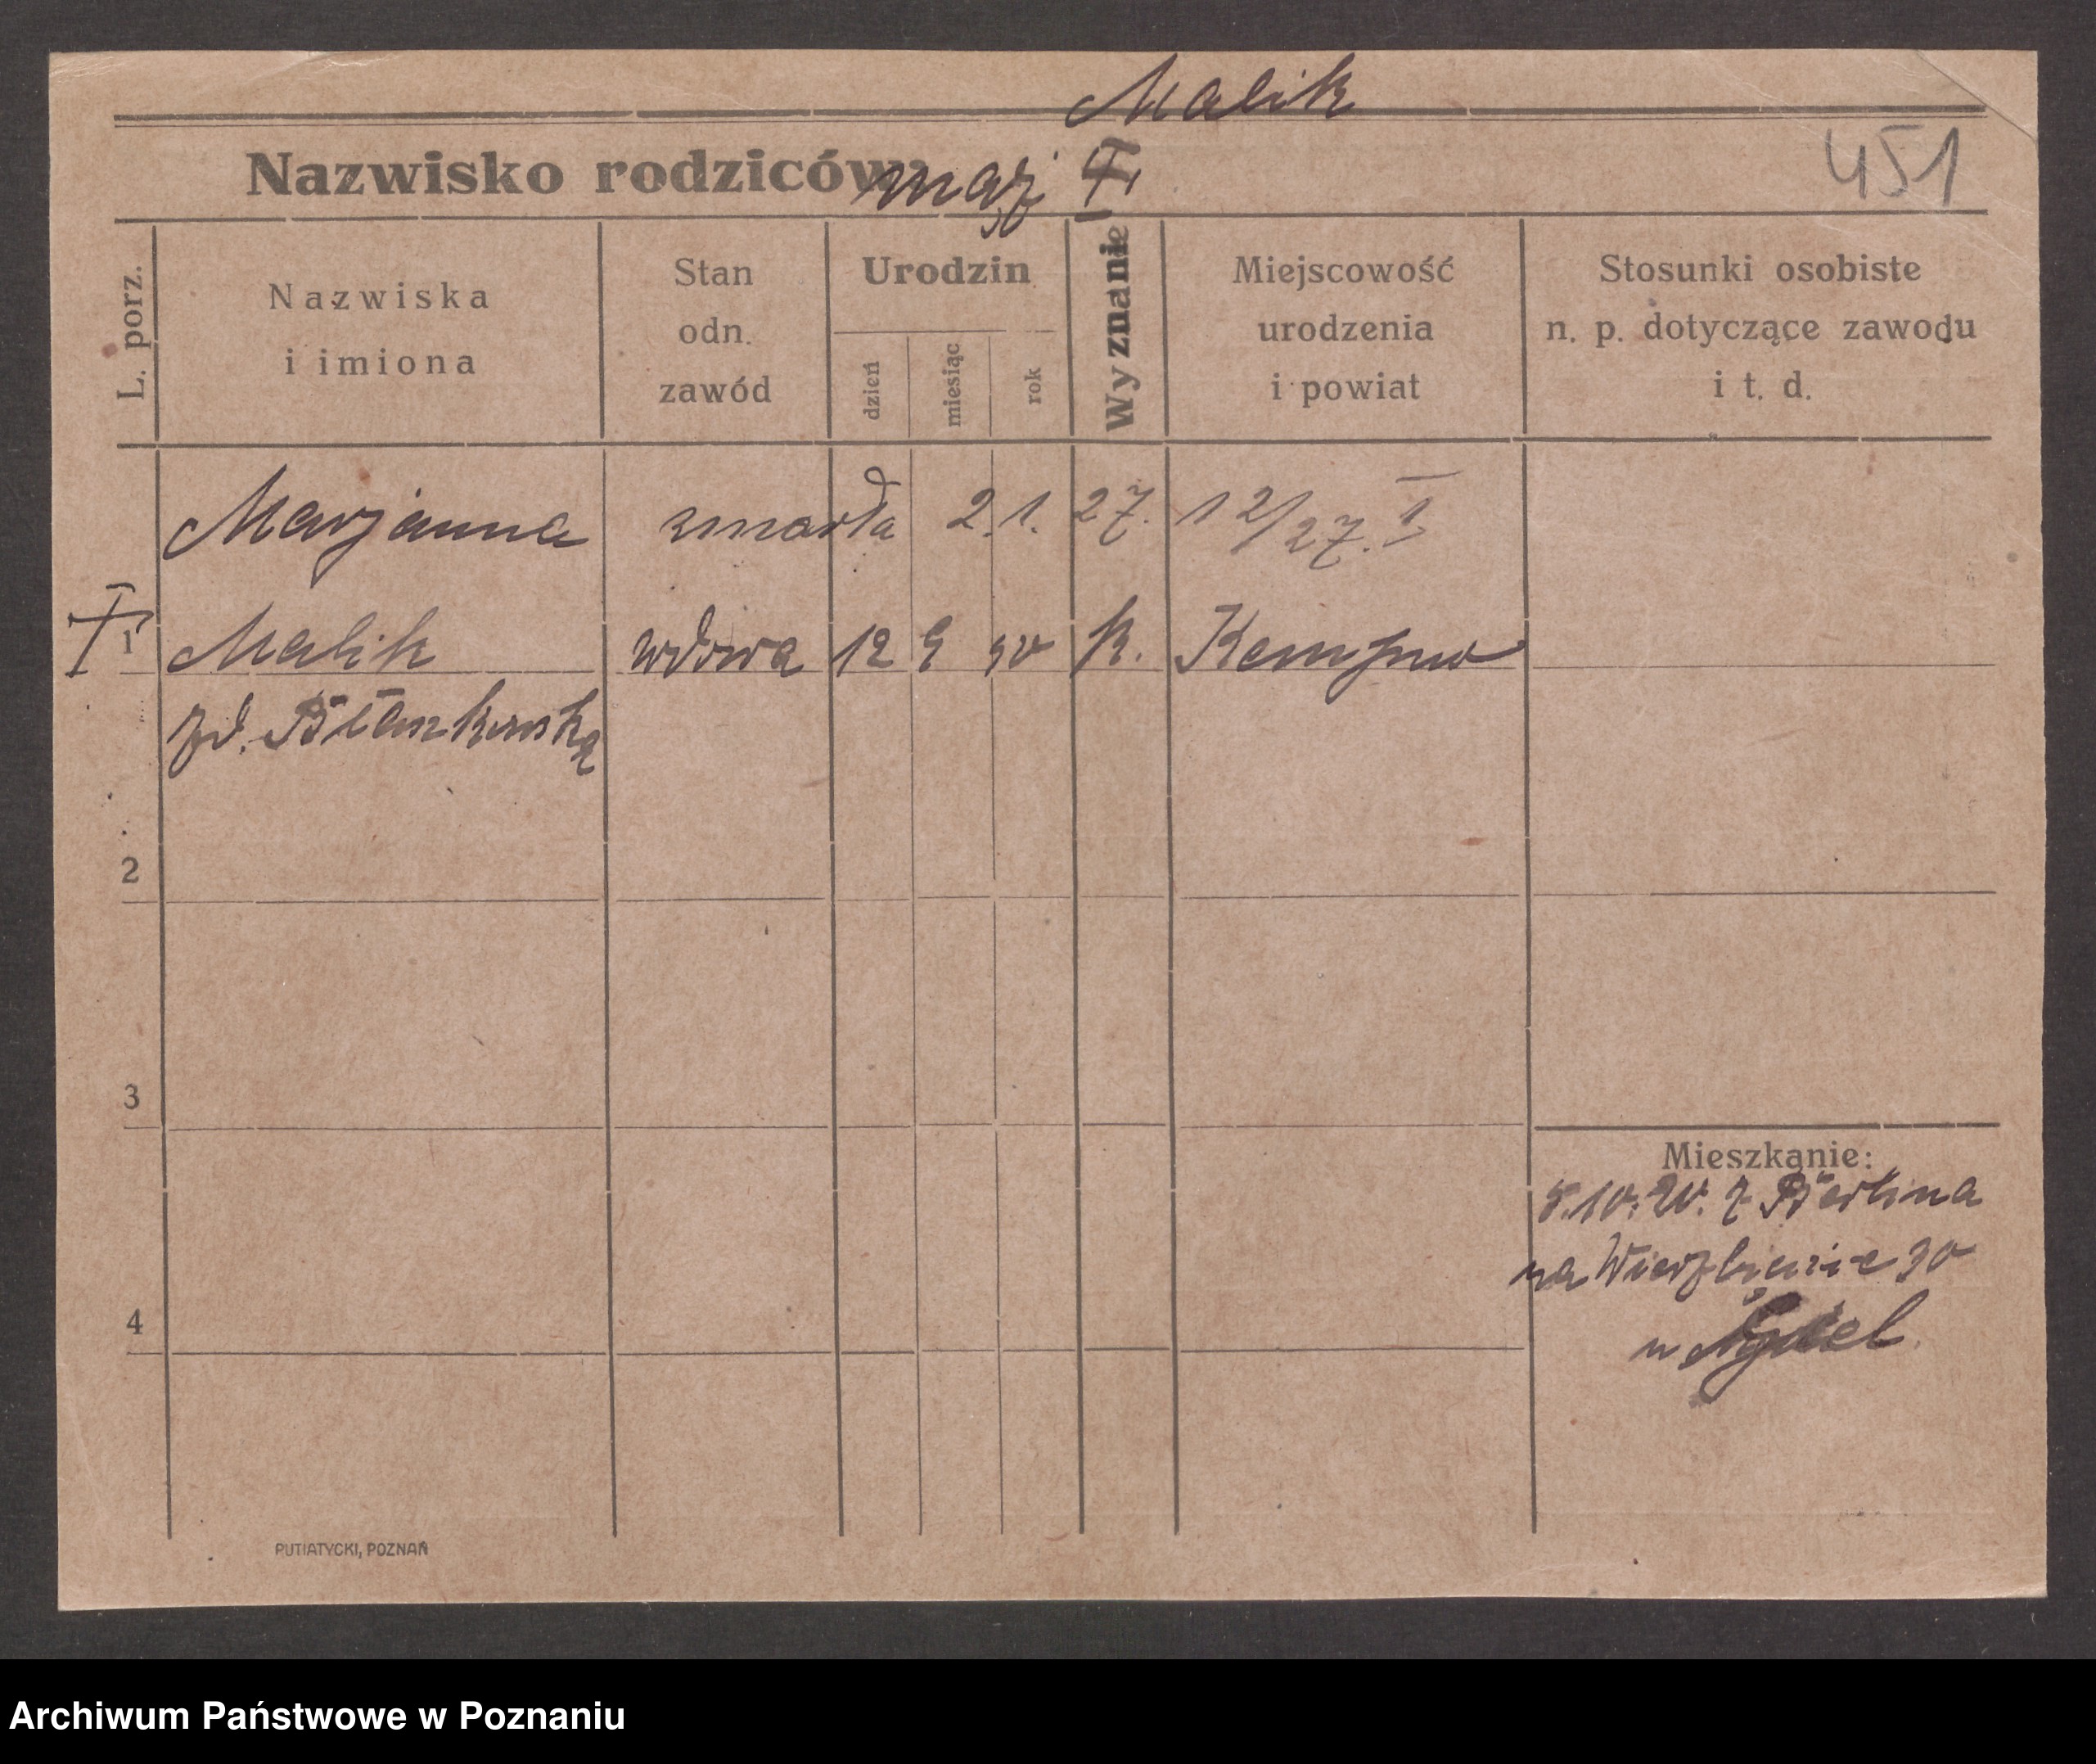 Malik
Nazwisko rodziców mąż
451
L. porz.
Nazwiska
i imiona
Stan
odn.
zawód
Urodzin
dzień
miesiąc
rok
Wyznanie
Miejscowość
urodzenia
i powiat
Stosunki osobiste
n. p. dotyczące zawodu
i t. d.
Marjanna zmarła 2.1.27. 12/27. I
1 Malik wdowa 12 9 50 k. Kempno
zd.
2
3
4
Mieszkanie:
5.10.20. z Berlina
na Wierzbięcice 30
u
PUTIATYCKI, POZNAŃ
Archiwum Państwowe w Poznaniu